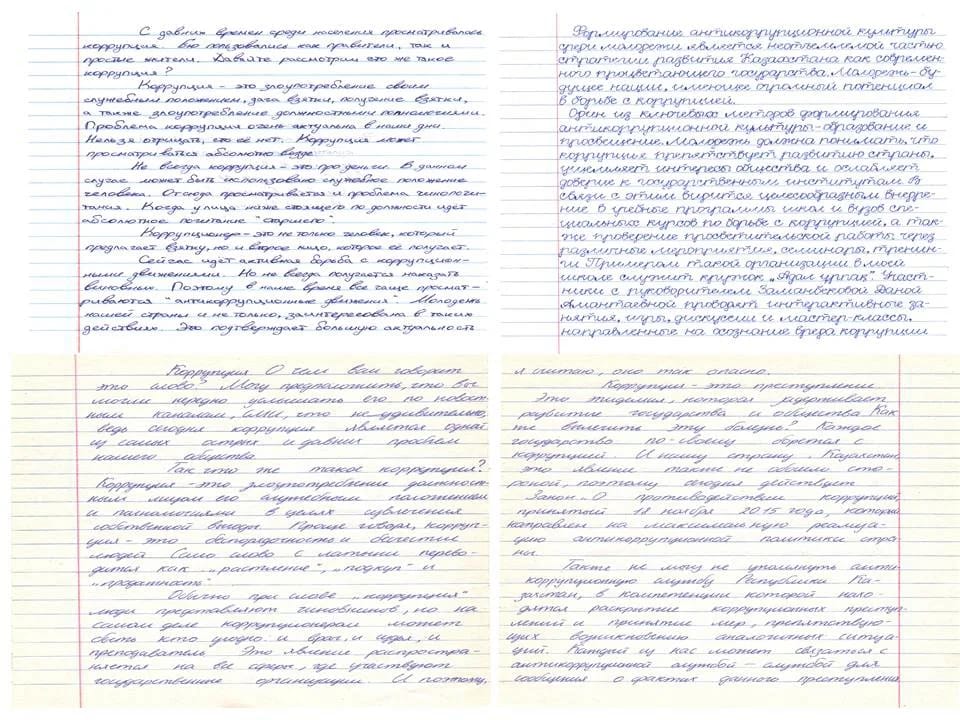 С давних времен среди населения просматривалась
коррупция. Ею пользовались как правители, так и
простые жители. Давайте рассмотрим что же такое
коррупция?
Коррупция - это злоупотребление своим
служебным положением, дача взятки, получение взятки,
а также злоупотребление должностными полномочиями.
Проблема коррупции очень актуальна в наши дни.
Нельзя отрицать, что её нет. Коррупция может
просматриваться абсолютно везде.
Не всегда коррупция - это про деньги. В данном
случае может быть использовано служебное положение
человека. Отсюда просматривается и проблема чинопочи-
тания. Когда у лица ниже стоящего по должности идет
абсолютное почитание "старшего".
Коррупционер - это не только человек, который
предлагает взятку, но и второе лицо, которое её получает.
Сейчас идет активная борьба с коррупцион-
ными движениями. Но не всегда получается наказать
виновных. Поэтому в наше время все чаще просмат-
риваются "антикоррупционные движения". Молодежь
нашей страны и не только, заинтересована в таких
действиях. Это подтверждает большую актуальность
Формирование антикоррупционной культуры
среди молодежи является неотъемлемой частью
стратегии развития Казахстана как современ-
ного процветающего государства. Молодежь-бу-
дущее нации, имеющее огромный потенциал
в борьбе с коррупцией.
Один из ключевых методов формирования
антикоррупционной культуры-образование и
просвещение. Молодежь должна понимать, что
коррупция препятствует развитию страны,
ущемляет интересы общества и ослабляет
доверие к государственным институтам. В
связи с этим видится целесообразным внедре-
ние в учебные программы школ и вузов спе-
циальных курсов по борьбе с коррупцией, а так-
же проведение просветительской работы через
различные мероприятие, семинары, тренин-
ги. Примером такой организации в моей
школе служит кружок „Адал ұрпақ". Участ-
ники с руководителем Заманбековой Даной
Амантаевной проводят интерактивные за-
нятия, игры, дискуссии и мастер-классы,
направленные на осознание вреда коррупции
Коррупция О чем вам говорит
это слово? Могу предположить, что вы
могли нередко услышать его по новост-
ным каналам, СМИ, что не удивительно,
ведь сегодня коррупция является одной
из самых острых и давних проблем
нашего общества.
Так что же такое коррупция?
Коррупция - это злоупотребление должност-
ным лицом его служебным положением
и полномочиями в целях извлечения
собственной выгоды. Проще говоря, корруп-
ция - это беспорядочность и бесчестие
людей Само слово с латыни перево-
дится как „растление", „подкуп" и
„продажность".
Обычно при слове „коррупция"
люди представляют чиновников, но на
самом деле коррупционерам может
быть кто угодно: и врач, и судья, и
преподаватель Это явление распростра-
няется на все сферы, где участвуют
государственные организации. И поэтому,
я считаю, оно так опасно.
Коррупция - это преступление
Это эпидемия, которая задерживает
развитие государства и общества Как
же вылечить эту болезнь? Каждое
государство по-своему борется с
коррупцией. И нашу страну, Казахстан,
это явление также не обошло сто-
роной, поэтому сегодня действует
Закон „О противодействии коррупции,
принятый 18 ноября 2015 года, который
направлен на максимальную реализа-
цию антикоррупционной политики стра-
ны.
Также не могу не упомянуть анти-
коррупционную службу Республики Ка-
захстан, в компетенции которой нахо-
дятся раскрытие коррупционных преступ-
лений и принятие мер, препятствую-
щих возникновению аналогичных ситуа-
ций. Каждый из нас может связаться с
антикоррупционной службой - службой для
сообщения о фактах данного преступления